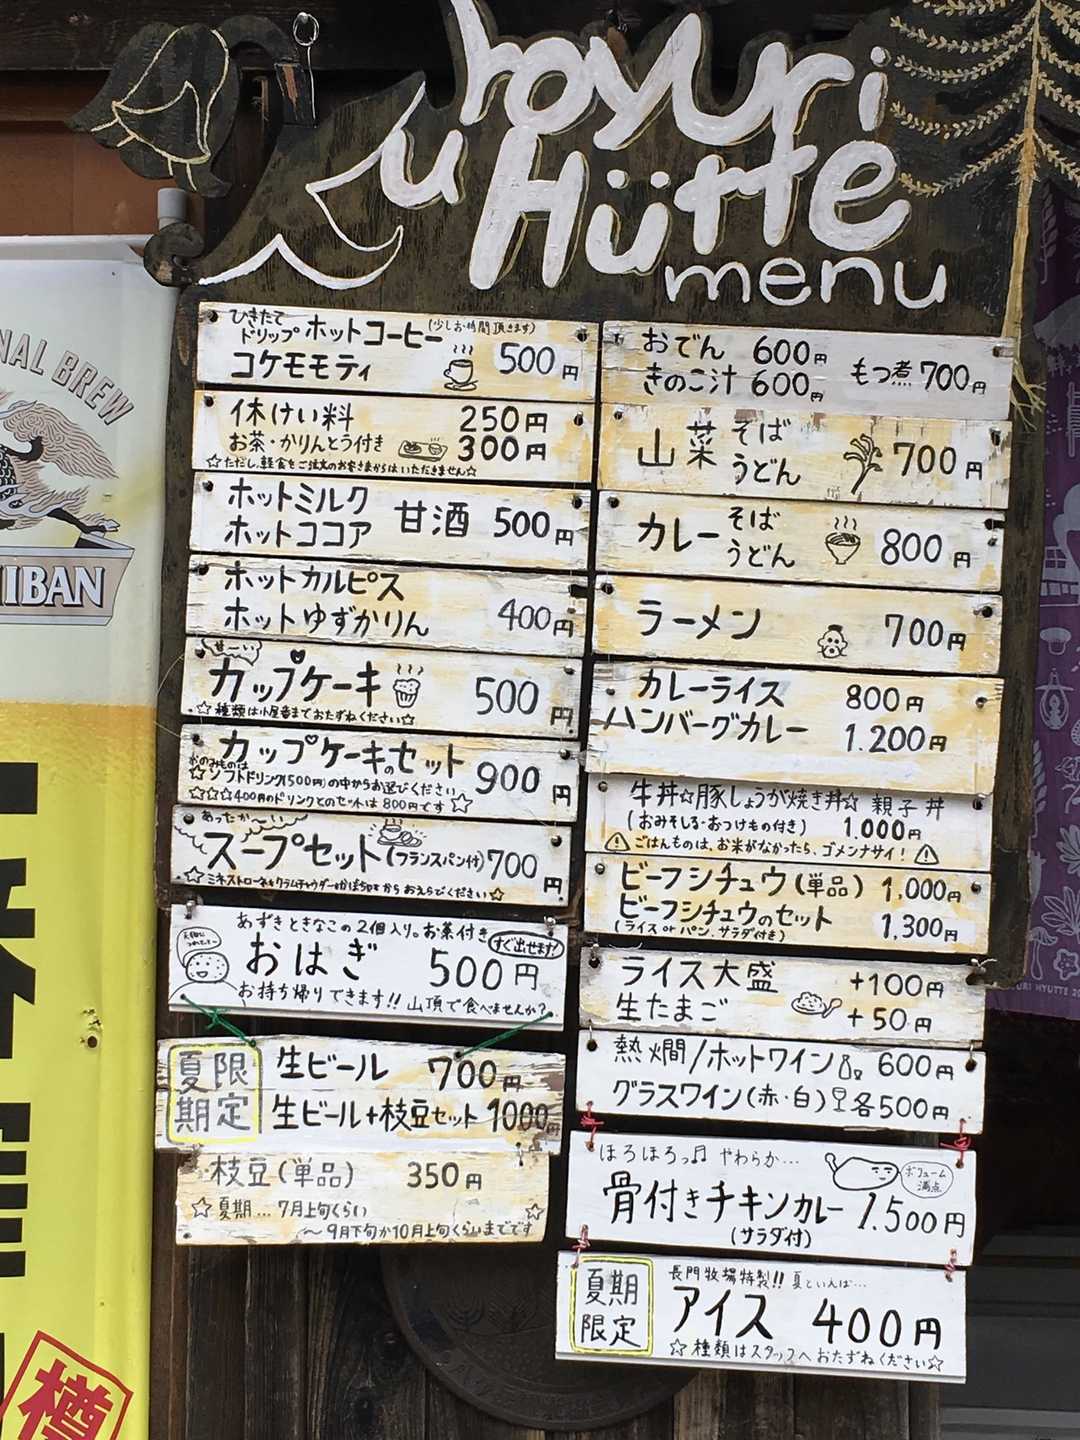 Kuroyuri
Hütte
menu
ひきたて
ドリップ ホットコーヒー (少しお時間頂きます)
コケモモティ 500円
休けい料 250円
お茶・かりんとう付き 300円
☆ただし、軽食をご注文のお客さまからはいただきません☆
ホットミルク
ホットココア 甘酒 500円
ホットカルピス
ホットゆずかりん 400円
甘〜い
カップケーキ 500円
☆種類は小屋番までおたずねください☆
カップケーキのセット 900円
お飲みものは
☆ソフトドリンク(500円)の中からお選びください
☆☆☆400円のドリンクとのセットは800円です☆
あったか〜い
スープセット(フランスパン付) 700円
☆ミネストローネ&クラムチャウダー&かぼちゃからおえらびください☆
あずきときなこの2個入り。お茶付き
おはぎ 500円
すぐ出せます!
お持ち帰りできます!! 山頂で食べませんか?
夏期限定
生ビール 700円
生ビール+枝豆セット 1000円
枝豆(単品) 350円
☆夏期…7月上旬くらい
〜9月下旬か10月上旬くらいまでです☆
おでん 600円
きのこ汁 600円
もつ煮 700円
山菜 そば うどん 700円
カレー そば うどん 800円
ラーメン 700円
カレーライス 800円
ハンバーグカレー 1.200円
牛丼☆豚しょうが焼き丼☆ 親子丼
(おみそしる・おつけもの付き) 1.000円
ごはんものは、お米がなかったら、ゴメンナサイ!
ビーフシチュウ(単品) 1,000円
ビーフシチュウのセット 1,300円
(ライス or パン、サラダ付き)
ライス大盛 +100円
生たまご +50円
熱燗/ホットワイン 600円
グラスワイン(赤・白) 各500円
ほろほろっ♫ やわらか…
ボリューム満点
骨付きチキンカレー 1.500円
(サラダ付)
夏期限定
長門牧場特製!! 夏といえば…
アイス 400円
☆種類はスタッフへおたずねください☆
NAL BREW
IBAN
樽